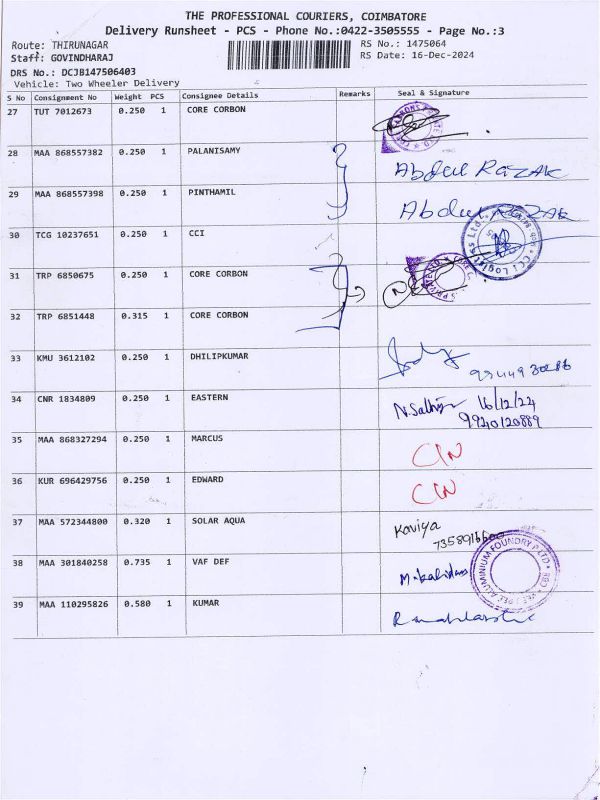 THE PROFESSIONAL COURIERS, COIMBATORE
Delivery Runsheet - PCS - Phone No.:0422-3505555 - Page No.:3
Route: THIRUNAGAR RS No.: 1475064
Staff: GOVINDHARAJ RS Date: 16-Dec-2024
DRS No.: DCJB147506403
Vehicle: Two Wheeler Delivery
S No Consignment No Weight PCS Consignee Details Remarks Seal & Signature
27 TUT 7012673 0.250 1 CORE CORBON
28 MAA 868557382 0.250 1 PALANISAMY Abdul RAZAK
29 MAA 868557398 0.250 1 PINTHAMIL Abdul RAZAK
30 TCG 10237651 0.250 1 CCI CCI Logistics Ltd.
31 TRP 6850675 0.250 1 CORE CORBON
32 TRP 6851448 0.315 1 CORE CORBON
33 KMU 3612102 0.250 1 DHILIPKUMAR
34 CNR 1834809 0.250 1 EASTERN 16/12/24
9940120889
35 MAA 868327294 0.250 1 MARCUS
36 KUR 696429756 0.250 1 EDWARD
37 MAA 572344800 0.320 1 SOLAR AQUA Kaviya
38 MAA 301840258 0.735 1 VAF DEF ALUMINIUM FOUNDRY P LTD
39 MAA 110295826 0.580 1 KUMAR